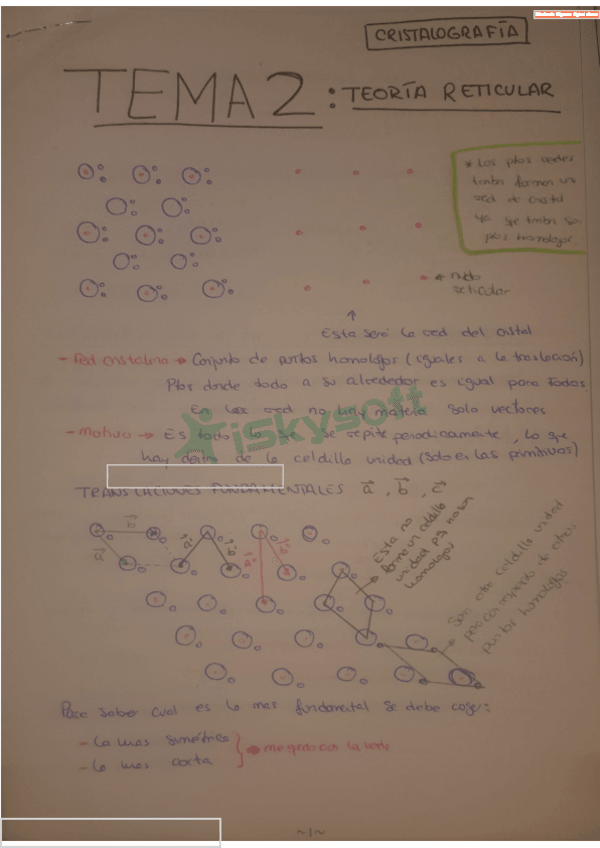 CRISTALOGRAFÍA
TEMA 2: TEORÍA RETICULAR
* Los ptos verdes
tmbn forman un
red de cristal
ya que tmbn son
ptos homologos
← nudo
reticular
↑
Esta será la red del cristal
- Red cristalina → Conjunto de puntos homologos (iguales a la traslación)
Ptos donde todo a su alrededor es igual para todos
En la red no hay materia solo vectores
- Motivo → Es todo lo que se repite periodicamente, lo que
hay dentro de la celdilla unidad (solo en las primitivas)
iskysoft
TRANSLACIONES FUNDAMENTALES a, b, c
b
a
a'
b'
a''
b''
Esta no
forma un celdilla
unidad pq no son
homologos
Son otra celdilla unidad
pero con respecto de otros
puntos homologos
Para saber cual es la mas fundamental se debe coger:
- La mas simétrica
- La mas corta
→ me quedo con la verde
~1~